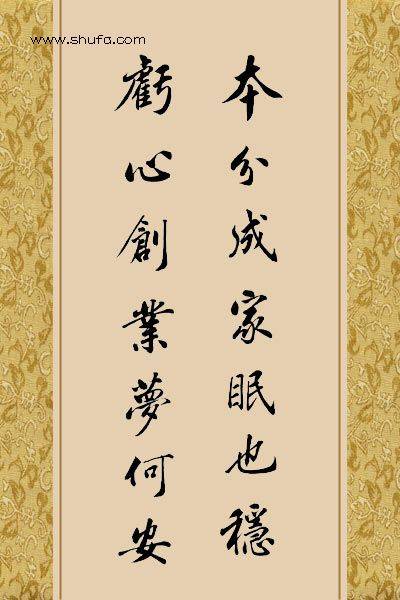 www.shufa.com
本分成家眠也穩
虧心創業夢何安